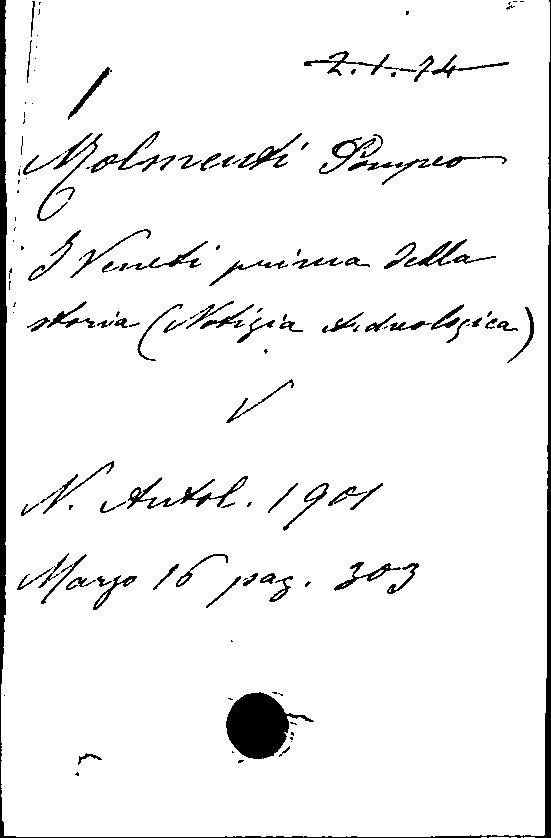 2.1.74
Molmenti Pompeo
I Veneti prima della
storia (Notizia Archeologica)
V
N. Antol. 1901
Marzo 16 pag. 303